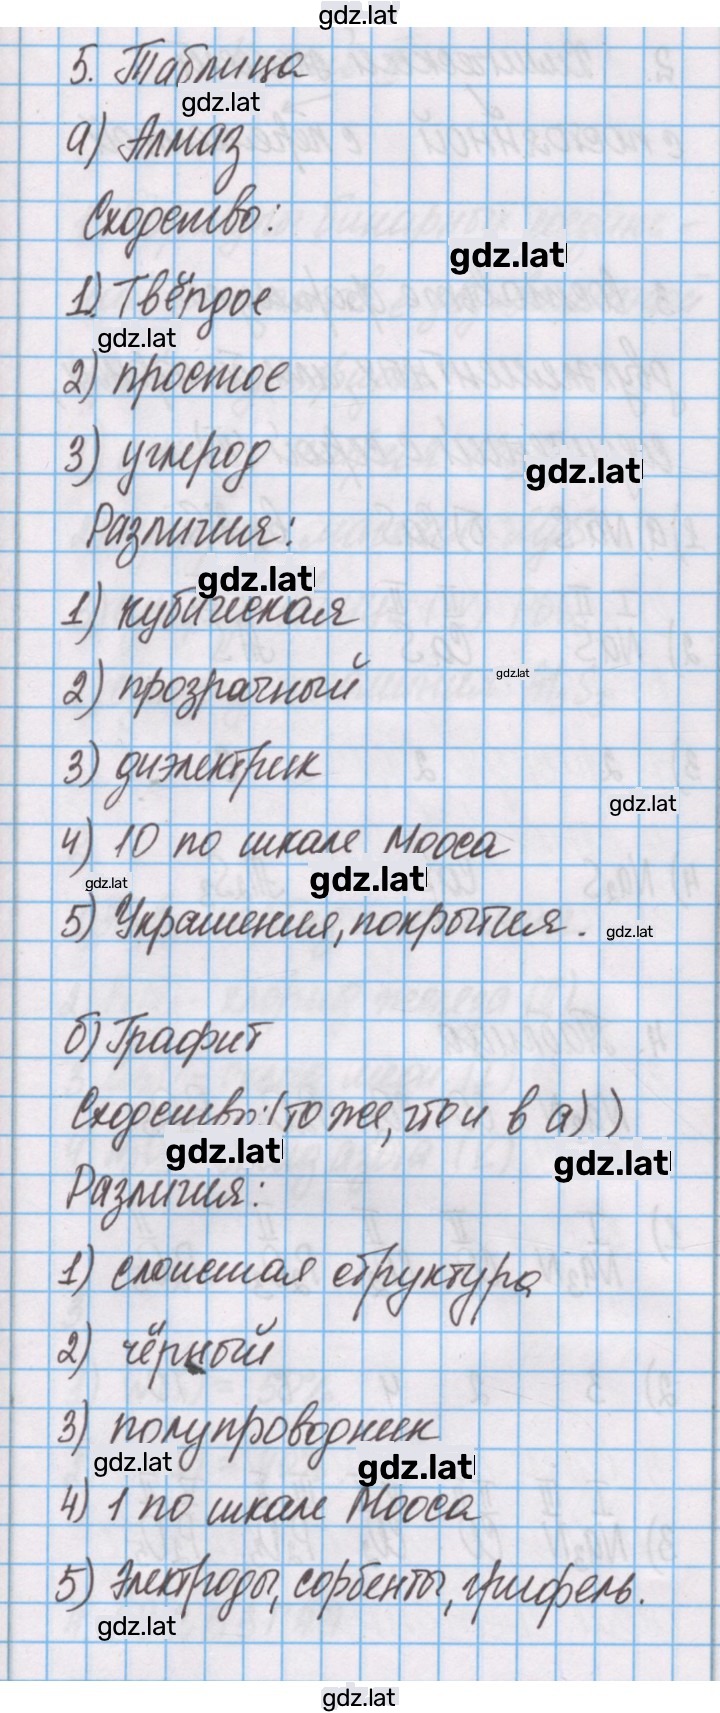 gdz.lat
5. Таблица
gdz.lat
а) Алмаз
Сходство:
gdz.lat
1) Твёрдое
gdz.lat
2) простое
3) углерод
gdz.lat
Различия:
gdz.lat
1) кубическая
2) прозрачный
gdz.lat
3) диэлектрик
gdz.lat
4) 10 по шкале Мооса
gdz.lat gdz.lat
5) Украшения, покрытия.
gdz.lat
б) Графит
Сходство: (то же, что и в а))
gdz.lat gdz.lat
Различия:
1) слоистая структура
2) чёрный
3) полупроводник
gdz.lat gdz.lat
4) 1 по шкале Мооса
5) Электроды, сорбенты, грифель.
gdz.lat
gdz.lat